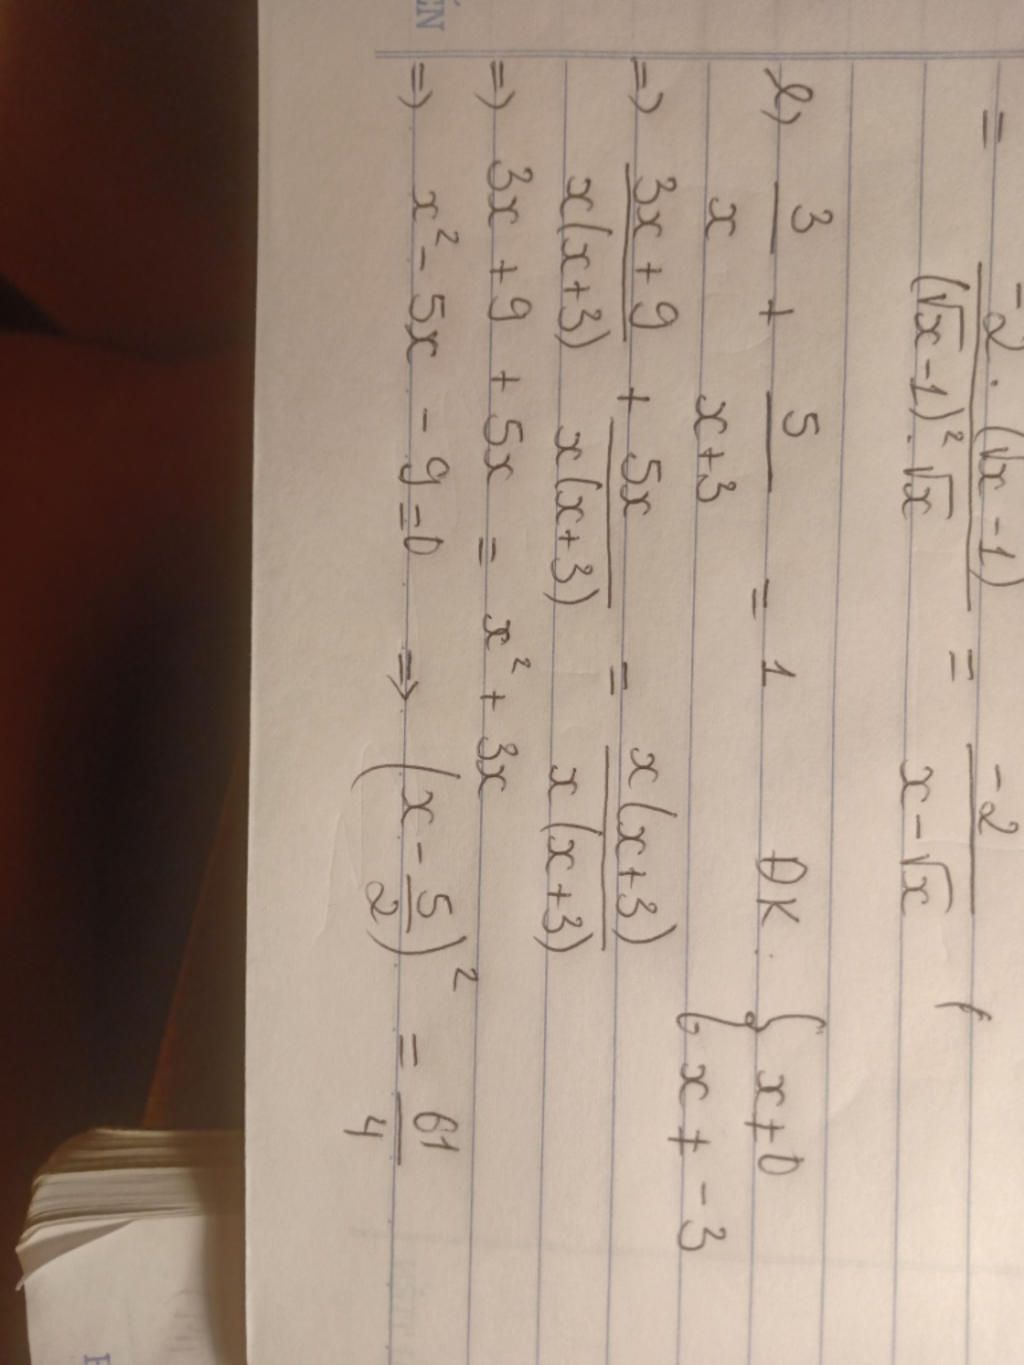 = -2 . (√x - 1) / (√x - 1)² . √x = -2 / x - √x
b) 3/x + 5/x+3 = 1 ĐK: { x ≠ 0 { x ≠ -3
=> 3x + 9 / x(x+3) + 5x / x(x+3) = x(x+3) / x(x+3)
=> 3x + 9 + 5x = x² + 3x
=> x² - 5x - 9 = 0 => (x - 5/2)² = 61/4